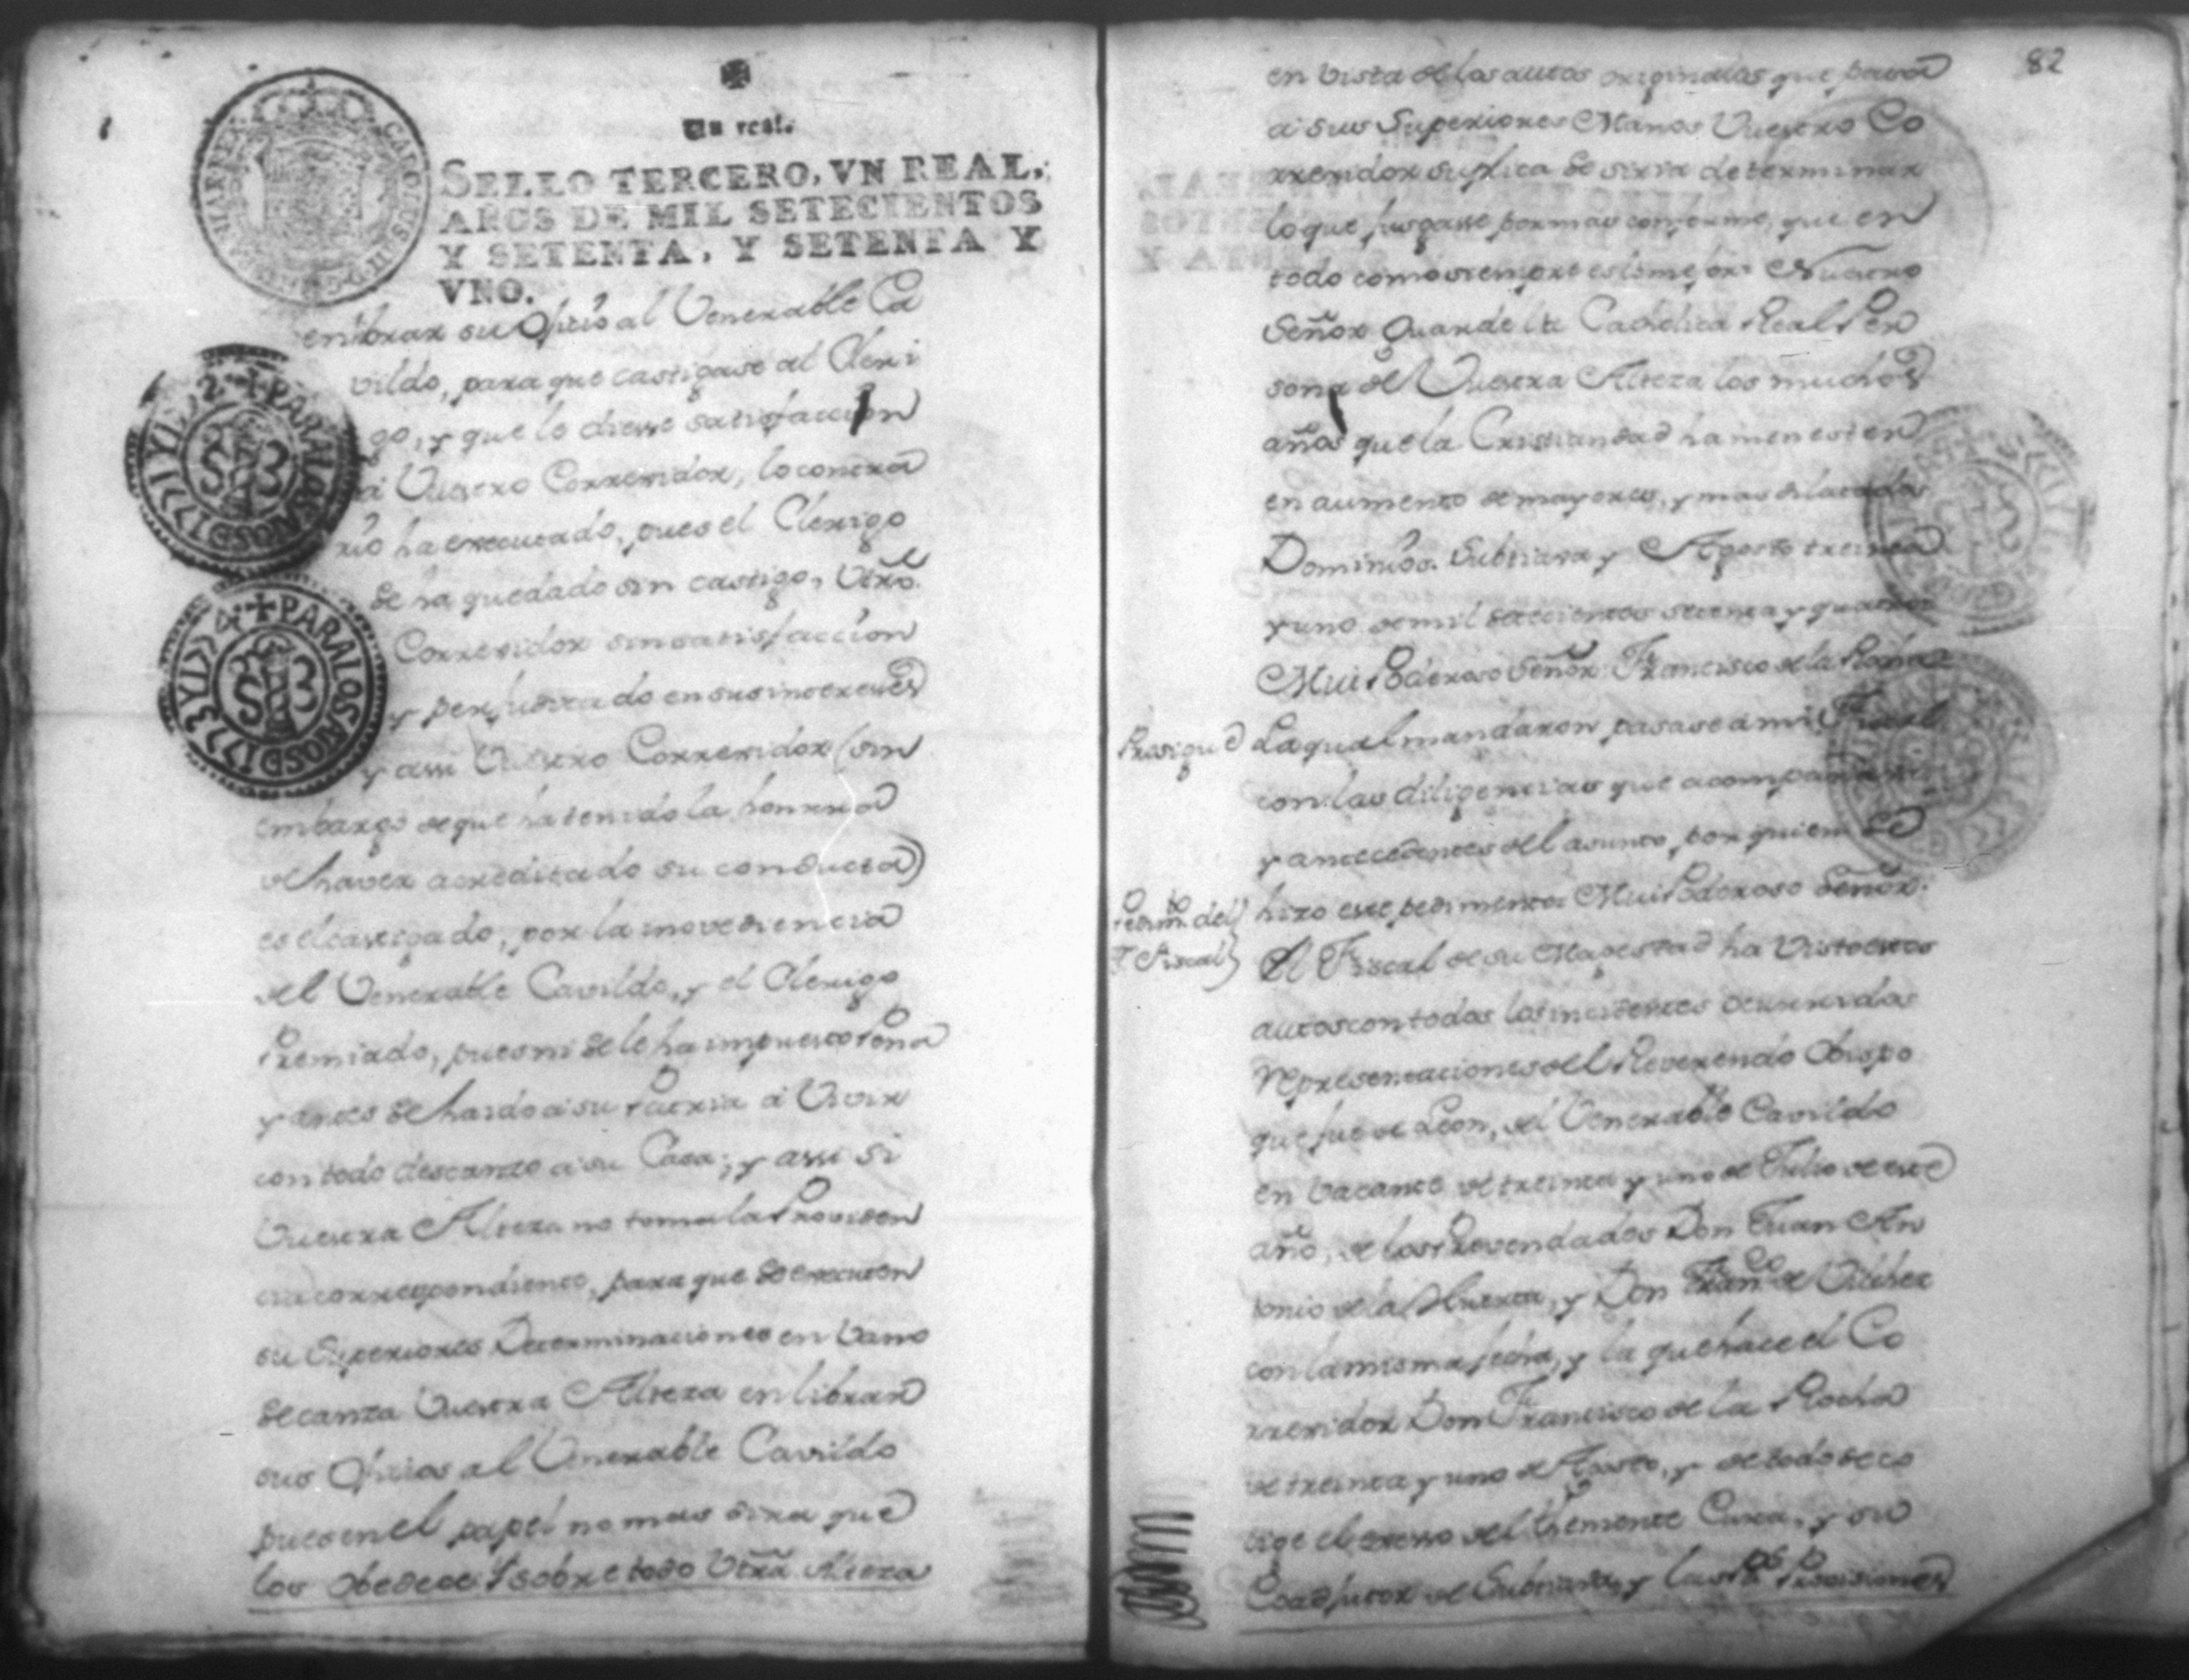 Un real.
SELLO TERCERO, VN REAL,
AÑOS DE MIL SETECIENTOS
Y SETENTA, Y SETENTA Y
VNO.
CAROLUS III D G
HIAR REX
+ PARA LOS AÑOS D 1771 Y 1772
+ PARA LOS AÑOS D 1773 Y 1774
en librar su Oficio al Venerable Ca
vildo, para que castigase al Cleri
go, y que le diesse satisfaccion
á Vuestro Corregidor, lo contra
rio ha executado, pues el Clerigo
se ha quedado sin castigo, Vtrõ.
Corregidor sin satisfaccion
y perjudicado en sus intereses
y assi Vuestro Corregidor (sin
embargo de que ha tenido la honrra
de haver acreditado su conducta)
es el castigado, por la inovediencia
del Venerable Cavildo, y el Clerigo
Premiado, pues ni se le ha impuesto Pena
y antes se ha ido a su Patria á Vivir
con todo descanzo á su Casa; y assi si
Vuestra Alteza no toma la Providen
cia correspondiente, para que se executen
su Superiores Determinaciones en Vano
se canza Vuestra Alteza en librar
sus Oficios al Venerable Cavildo
pues en el papel no mas dira que
los Obedece Y sobre todo Vtrã Alteza
82
en vista de los autos originales que pasa
á sus Superiores Manos Vuestro Co
rregidor suplica se sirva determinar
lo que jusgasse por mas conforme, que en
todo como siempre es lo mejor. Nuestro
Señor Guarde la Catholica Real Per
sona de Vuestra Alteza los muchos
años que la Cristiandad ha menester
en aumento de mayores, y mas dilatados
Dominios. Subtiava y Agosto treinta
y uno de mil setecientos setenta y quatro
Mui Poderoso Señor Francisco de la Rocha
Prosigue La qual mandaron pasase á mi Fiscal
con las diligencias que acompaña
y antecedentes del asunto, por quien se
Pedimto. del hizo este pedimento: Mui Poderoso Señor.
S. Fiscal El Fiscal de su Magestad ha Visto estos
autos con todos los incidentes ocurridos
representaciones del Reverendo Obispo
que fue de Leon, del Venerable Cavildo
en Vacante de treinta y uno de Julio de este
año, de los Prevendados Don Juan An
tonio de la Huerta, y Don Franco. de Vilchez
con la misma fecha, y la que hace el Co
rregidor Don Francisco de la Rocha
de treinta y uno de Agosto, y de todo se co
lige el exesso del theniente Cura, y su
Coadjutor de Subtiava, y las Rs. Provisiones